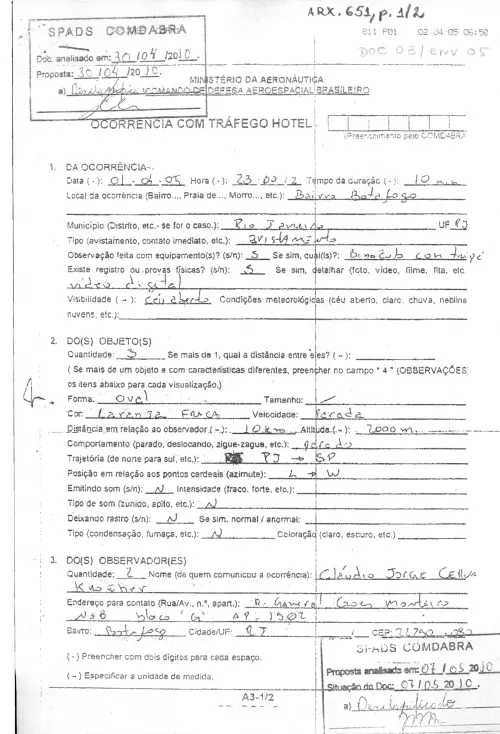 ARX. 651, p. 1/2
SPADS COMDABRA
611 P01 02/04/05 06:50
Doc. analisado em: 30/04/2010.
DOC 03/ENV 05
Proposta: 30/04/2010.
MINISTÉRIO DA AERONÁUTICA
a) Desclassificado COMANDO DE DEFESA AEROESPACIAL BRASILEIRO
OCORRÊNCIA COM TRÁFEGO HOTEL
(Preenchimento pelo COMDABRA
1. DA OCORRÊNCIA
Data (-): 01-04-05 Hora (-): 23:00:2 Tempo da duração (-): 10 min.
Local da ocorrência (Bairro..., Praia de..., Morro..., etc.): Bairro Botafogo
Município (Distrito, etc.- se for o caso.): Rio Janeiro UF RJ
Tipo (avistamento, contato imediato, etc.): avistamento
Observação feita com equipamento(s)? (s/n): S Se sim, qual(is)?: Binóculo com tripé
Existe registro ou provas físicas? (s/n): S Se sim, detalhar (foto, vídeo, filme, fita, etc.
vídeo digital
Visibilidade ( – ): Céu aberto Condições meteorológicas (céu aberto, claro, chuva, neblina
nuvens, etc.):
2. DO(S) OBJETO(S)
Quantidade: 3 Se mais de 1, qual a distância entre eles? ( – ):
( Se mais de um objeto e com características diferentes, preencher no campo " 4 " (OBSERVAÇÕES)
os itens abaixo para cada visualização.)
Forma: Oval Tamanho:
Cor: Laranja FRACA Velocidade: Parada
Distância em relação ao observador ( – ): 10 km Altitude ( – ): 2000 m.
Comportamento (parado, deslocando, zigue-zague, etc.): parado
Trajetória (de norte para sul, etc.): RJ → SP
Posição em relação aos pontos cardeais (azimute): L → W
Emitindo som (s/n): N Intensidade (fraco, forte, etc.):
Tipo de som (zunido, apito, etc.): N
Deixando rastro (s/n): N Se sim, normal / anormal:
Tipo (condensação, fumaça, etc.): N Coloração (claro, escuro, etc.)
3. DO(S) OBSERVADOR(ES)
Quantidade: 2 Nome (de quem comunicou a ocorrência): Claudio Jorge
Endereço para contato (Rua/Av., n.º, apart.): R. General Goes Monteiro
Nº 8 bloco G AP. 1902
Bairro: Botafogo Cidade/UF: RJ CEP:
SPADS COMDABRA
( - ) Preencher com dois dígitos para cada espaço.
Proposta analisada em: 07/05 2010
( – ) Especificar a unidade de medida.
Situação do Doc: 07/05 2010.
A3-1/2
a) Desclassificado